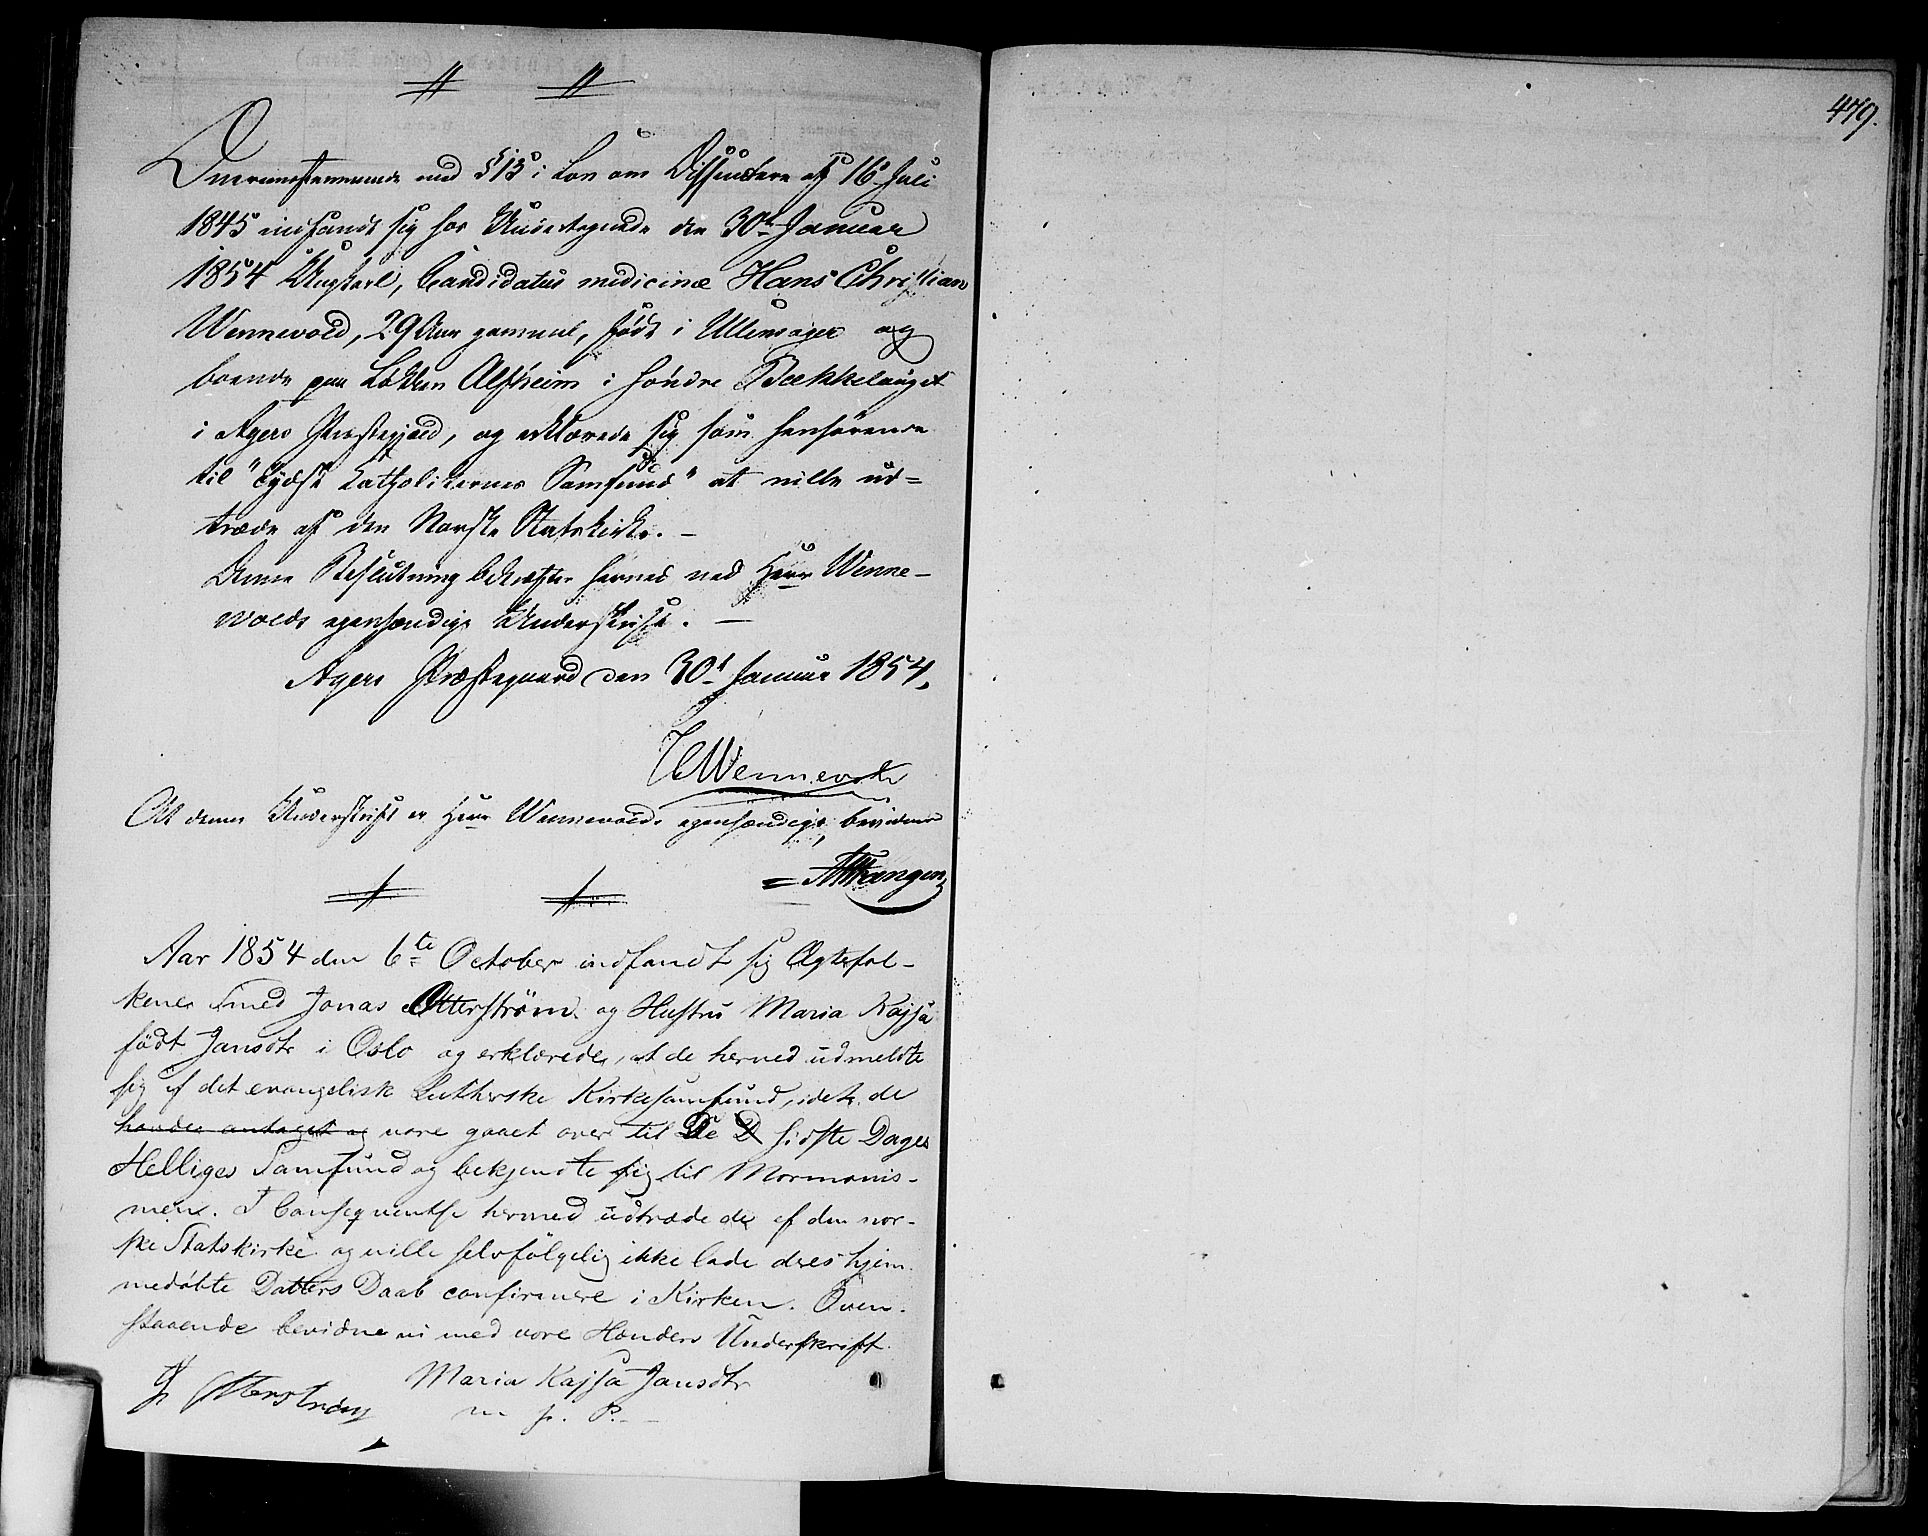 Overeensstemmende med § 13 i Lov om Dissentere af 16 Juli
1845 indfandt sig hos Undertegnede den 30t Januar
1854 Ungkarl, Candidatus medicinæ Hans Christian
Wennevold, 29 Aar gammel, født i Ullensager og
boende paa Løkken Alfheim i søndre Bækkelauget
i Agers Præstegjæld, og erklærede sig som henhørende
til "tydsk Katholikernes Samfund" at ville ud=
træde af den Norske Statskirke. –
Denne Beslutning bekræftes herved ved Herr Wenne-
volds egenhændige Underskrift. –
Agers Præstegaard den 30t Januar 1854.
HCWennevold
At denne Underskrift er Herr Wennevolds egenhændige, bevidner
Aar 1854 den 6te October indfandt sig Ægtefol-
kene Smed Jonas Otterstrøm og Hustru Maria Kajsa
født Jansdtr i Oslo og erklærede, at de herved udmeldte
sig af det evangelisk Lutherske Kirkesamfund, idet de
havde antaget og vare gaaet over til De D sidste Dages
Helliges Samfund og bekjendte sig til Mormonis-
men. I Consequentse hermed udtræde de af den nor-
ske Statskirke og ville selvfølgelig ikke lade deres hjem-
medøbte Datters Daab confirmere i Kirken. Oven-
staaende bevidne vi med vore Hænders Underskrift.
J Otterström Maria Kajsa Jansdtr
m. p. P.
479.